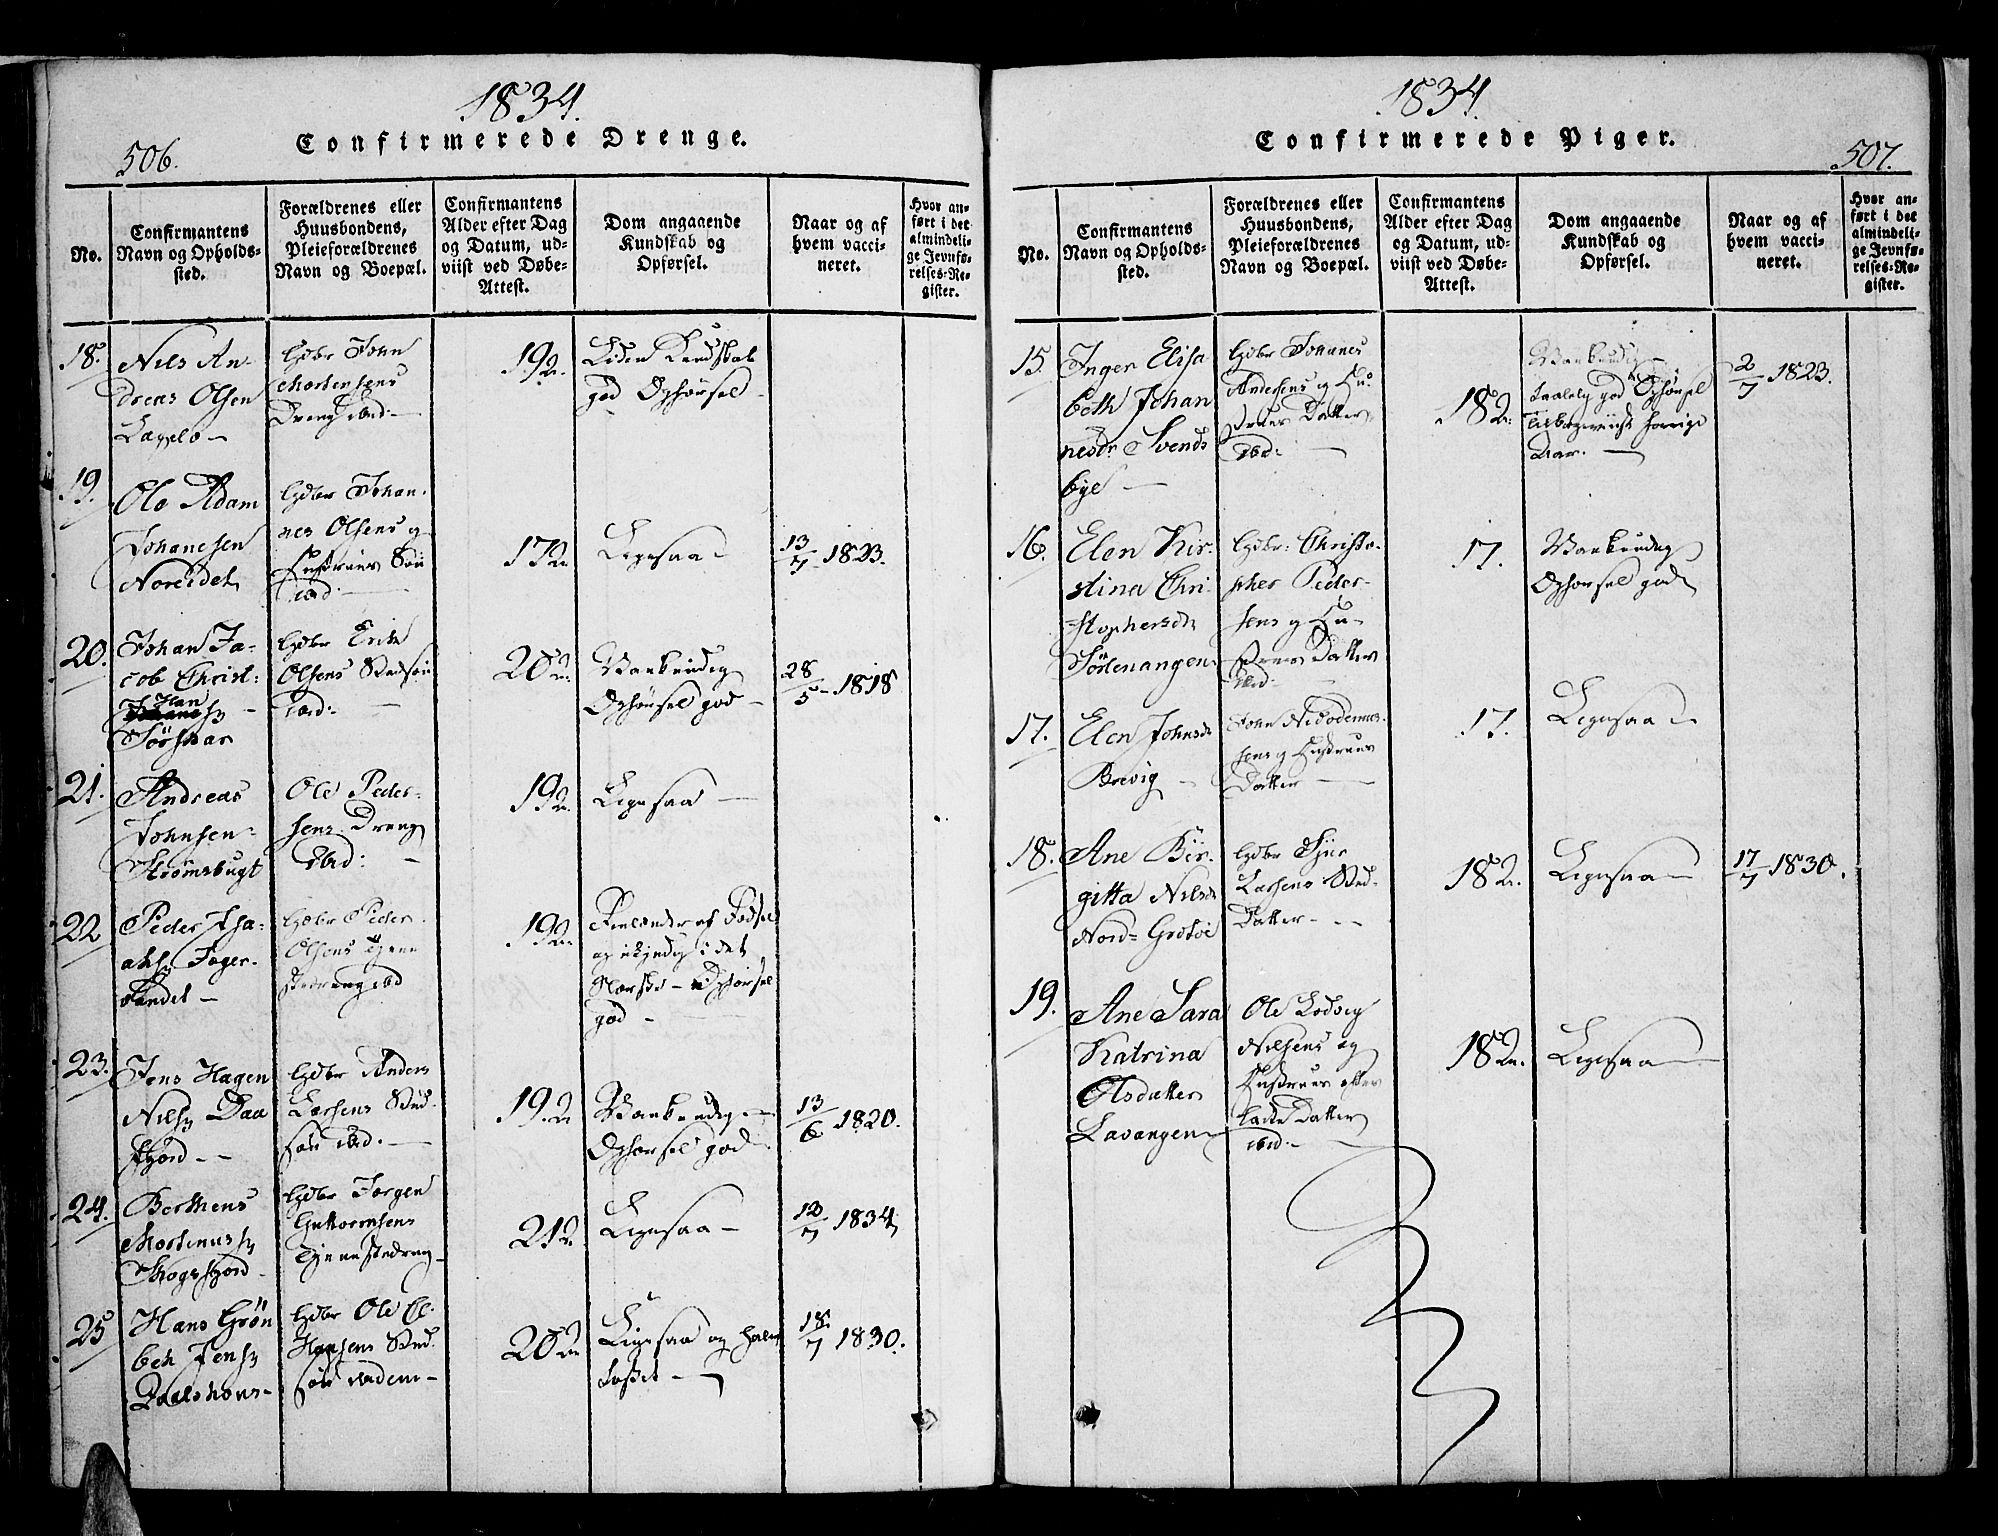 1834.
Confirmerede Drenge.
506.
No.
Confirmantens
Navn og Opholds-
sted.
Forældrenes eller
Huusbondens,
Pleieforældrenes
Navn og Boepæl.
Confirmantens
Alder efter Dag
og Datum, ud-
viist ved Døbe-
Attest.
Dom angaaende
Kundskab og
Opførsel.
Naar og af
hvem vacci-
neret.
Hvor an-
ført i det
almindeli-
ge Jevnfø-
relses-Re-
gister.
18.
Nils An-
dreas Olsen
Gdbr John
Mortensens
Dreng ibd:
19
Liden Kundskab
god Opførsel
19.
Ole Adam
Johanesen
Noreidet
Gdbr Johan-
nes Olsens og
Hustrues Søn
ibid:
17
Ligesaa
13/7 1823.
20.
Johan Ja-
cob Christ:
Johan
Gdbr Erik
Olsens Stedsøn
ibid:
20
Vankundig
Opførsel god
28/5 1818
21.
Andreas
Johnsen
Strømsbugt
Ole Peder-
sens Dreng
ibid:
19
Ligesaa
22
Peder Isa-
Gdbr Peder
Olsens Tjene-
stedreng ibd
19
Finlænder af Fødsel
og ukyndig i det
Norske - Opførsel
god -
23.
Jens Hagen
Nils Daa
fjord
Gdbr Anders
Larsens Sted-
søn ibid.
19
Vankundig
Opførsel god
13/6 1820.
24.
Berthens
Mortinus
Gdbr Jørgen
Guttormsens
Tjenestedreng
21
Ligesaa
1834
25
Hans Grøn
bek Jens
Gdbr Ole
Hansens Sted-
søn
20
Ligesaa og halv
tosset
18/7 1830.
1834
Confirmerede Piger.
507.
No.
Confirmantens
Navn og Opholds-
sted.
Forældrenes eller
Huusbondens,
Pleieforældrenes
Navn og Boepæl.
Confirmantens
Alder efter Dag
og Datum, ud-
viist ved Døbe-
Attest.
Dom angaaende
Kundskab og
Opførsel.
Naar og af
hvem vacci-
neret.
Hvor an-
ført i det
almindeli-
ge Jevnfø-
relses-Re-
gister.
15.
Inger Elisa
beth Johan
nesdr Svends
bye
Gdbr Johanes
Andersens og Hu-
strues Datter
ibd:
18
Vankundig
taalelig god Opførsel
Tilbageviist forrige
Aar.
2/7 1823.
16.
Elen Kir-
stina Chri-
stophersdr
Sörlenangen
Gdbr: Christo-
pher Peder-
sens og Hu-
strues Datter
ibid:
17.
Vankundig
Opførsel god
17.
Elen Johnsdr
Brevig
John Nicodemus-
sens og Hustrues
Datter
17.
Ligesaa
18.
Ane Bir-
gitta Nilsdr
Nord-Grötöe
Gdbr
Larsens Sted-
Datter
18
Ligesaa
17/7 1830.
19.
Ane Sara
Katrina
Olsdatter
Lavangen
Ole Lodvig
Nilsens og
Hustrues efter
ladte Datter
ibid:
18
Ligesaa